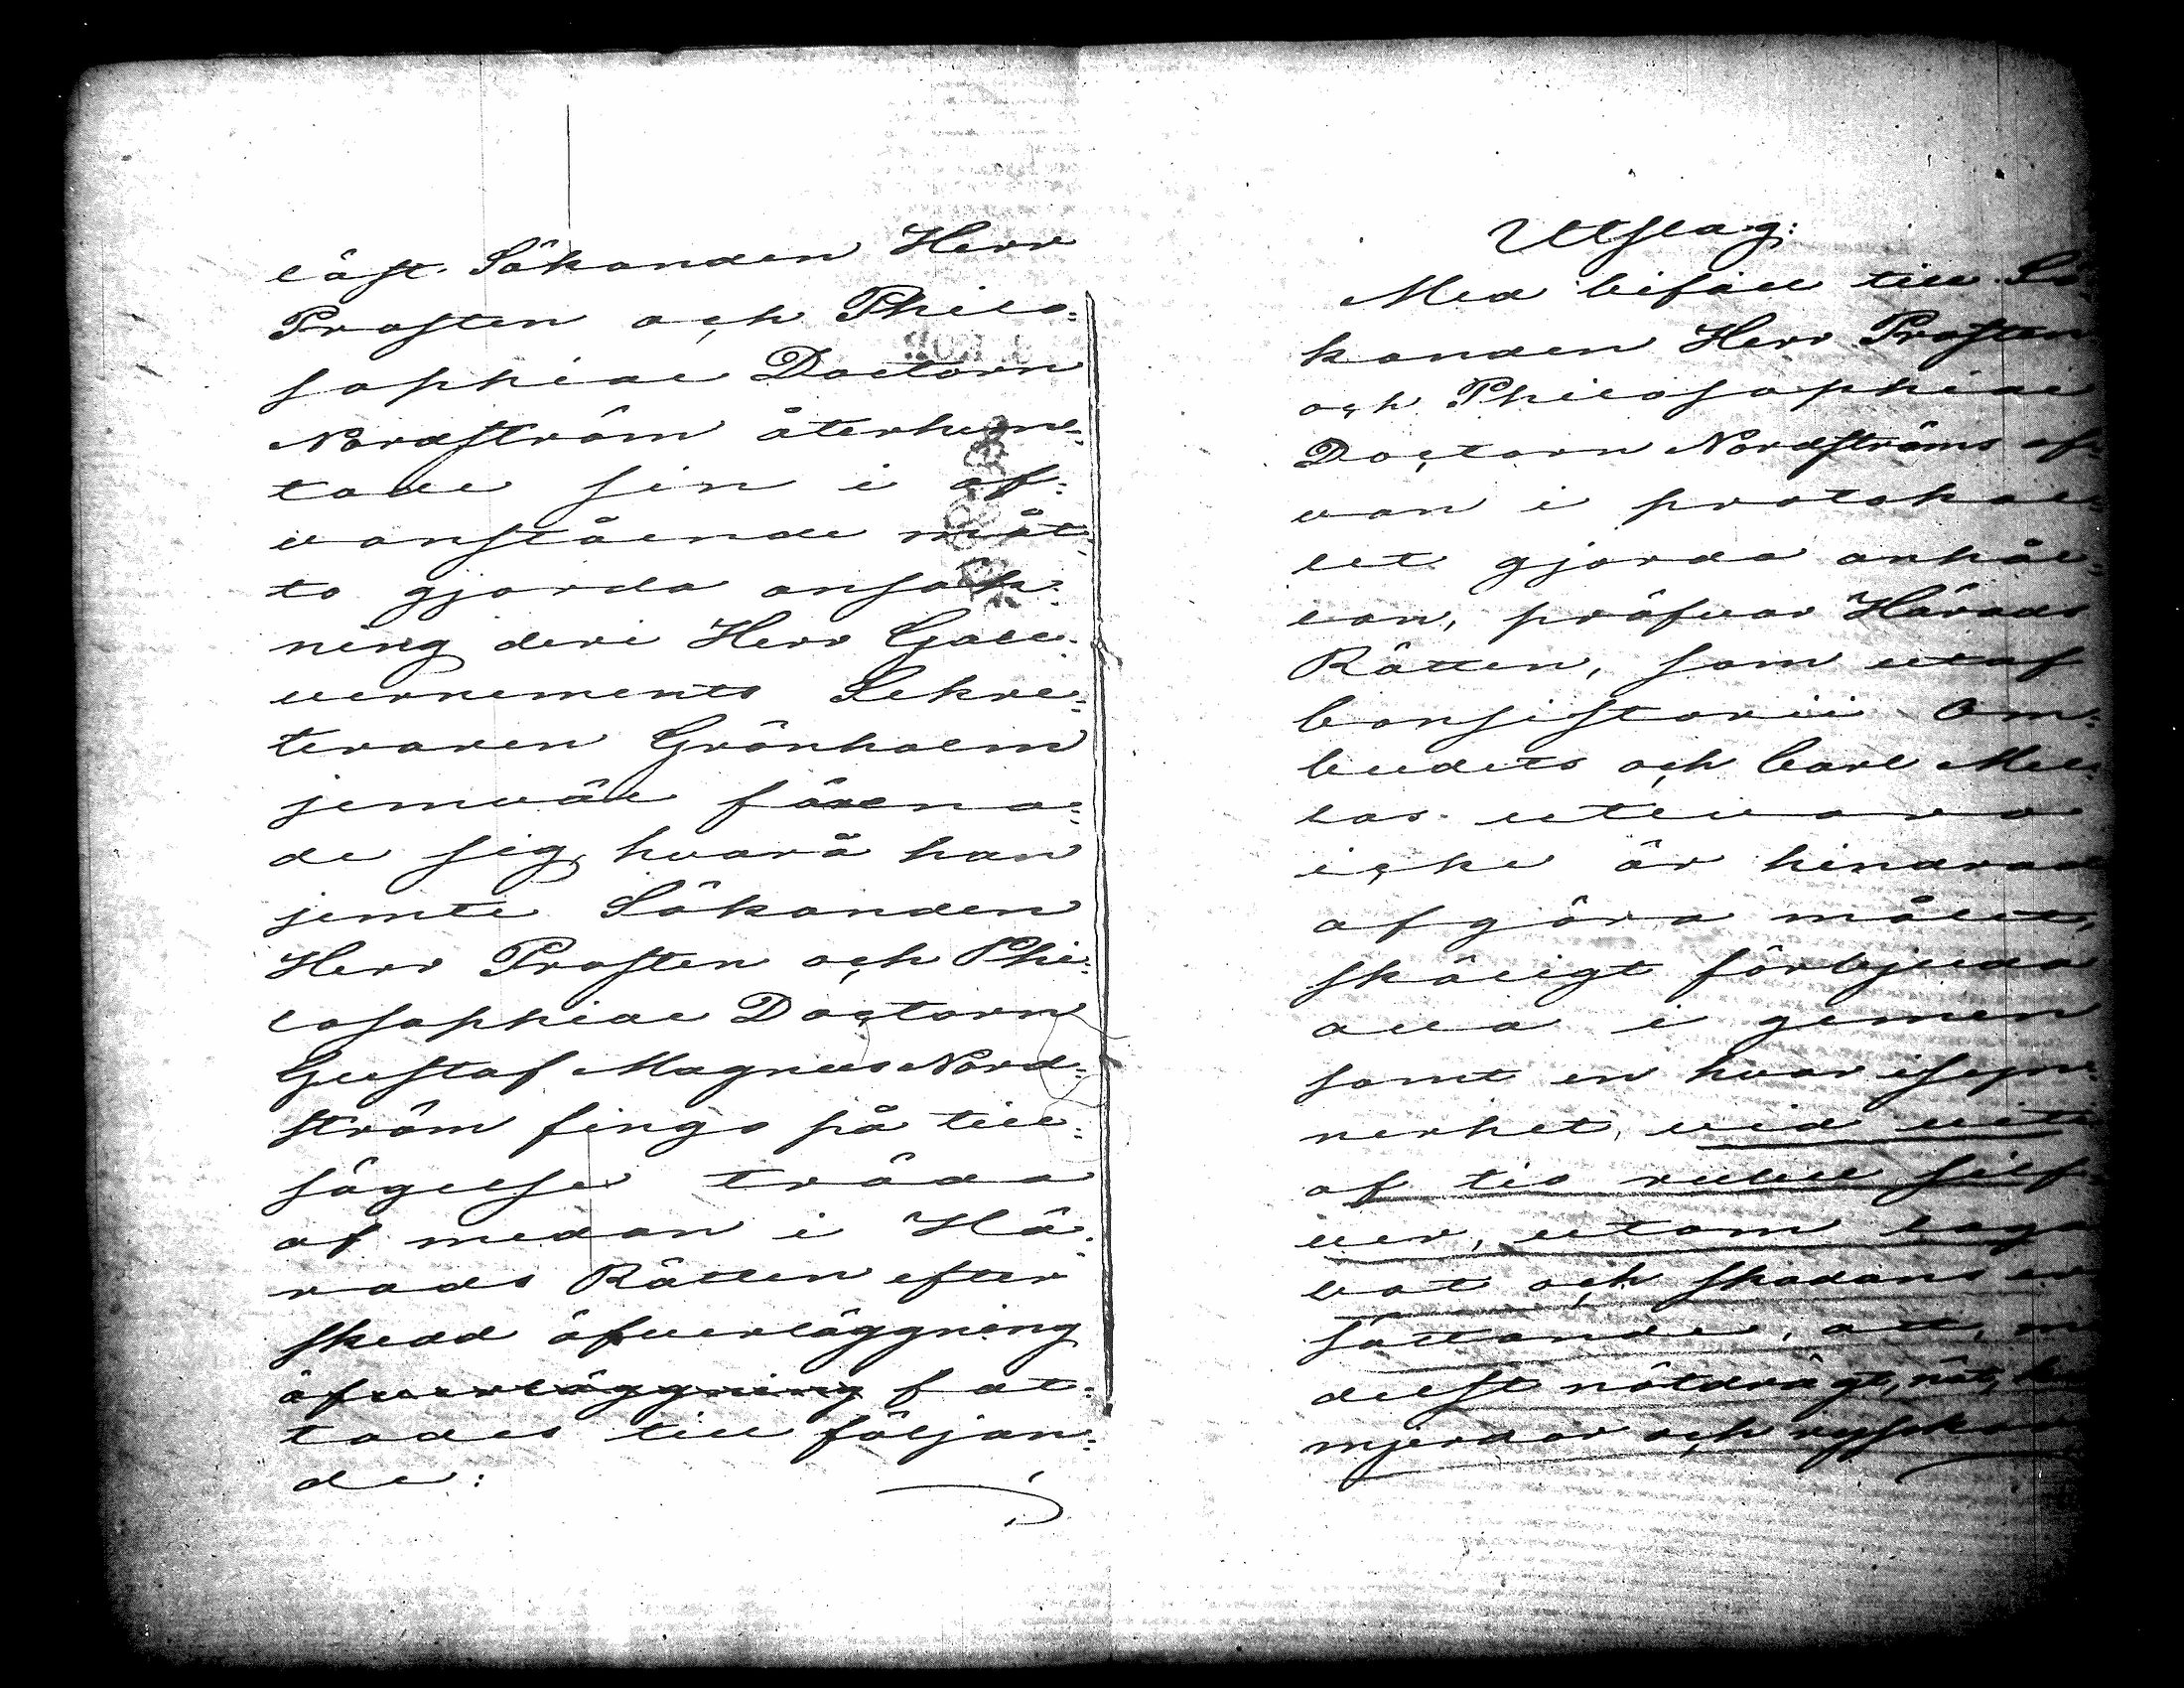 läst. Sökanden Herr
Prosten och Philo=
sophiae Doctorn
Nordström återhem=
tade sin i of=
vanstående måt=
to gjorda ansök=
ning deri Herr Gou=
vernements Sekre=
teraren Grönholm
jemväl förena=
de sig, hvarå han
jemte Sökanden
Herr Prosten och Phi=
losophiae Doctorn
Gustaf Magnus Nord=
ström fingo på till=
sägelse träda
af medan i Hä=
rads Rätten efter
skedd öfverläggning
öfverläggning fat=
tades till följan=
de:
Utslag:
Med bifall till Sö
kanden Herr Prosten
och Philosophiae
Doctorn Nordströms of=
van i protokol=
let gjorda anhål=
lan, pröfvar Härads
Rätten, som utaf
Consistorii Om=
budets och Carl Mel=
las utevaro
icke är hindrad
afgöra målet,
skäligt förbjuda
alla i gemen
samt en hvar isyn=
nerhet, vid vite
af tio rubel silf=
ver, utom laga
bot och skadans er
sättande, att, me
delst nötdrägt, nät, ka
mjerdor och rysskor